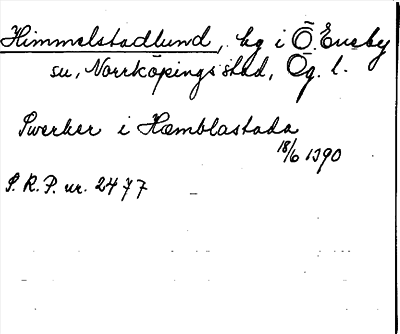 Himmelstadlund, hg i Ö. Eneby
sn, Norrköpings stad, Ög. l.
Swerker i Hæmblastada
18/6 1390
S. R. P. nr. 2477